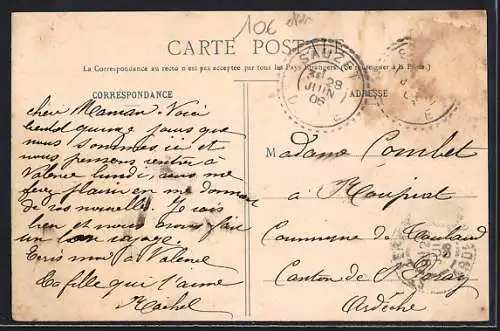 10€
CARTE POSTALE
La Correspondance au recto n'est pas acceptée par tous les Pays Etrangers. (Se renseigner à la Poste.)
CORRESPONDANCE
ADRESSE
SAULET
28
JUIN
06
cheri Maman. Voici
bientot quinze jours que
nous sommes ici et
nous pensons rentrer à
Valence lundi, vous me
ferez plaisir en me donnant
de vos nouvelles. Je vais
bien et nous avons fait
un bon voyage.
Ecris moi à Valence
Ta fille qui t'aime
Rachel
Madame Combet
à
Commune de
Canton de St
Ardèche